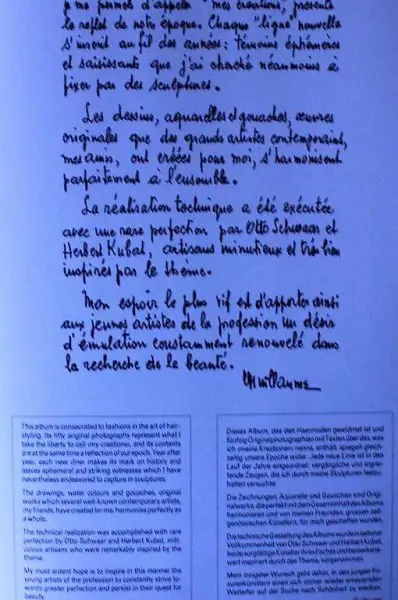 je me permets d'appeler "mes créations, présente
le reflet de notre époque. Chaque "ligne" nouvelle
s'inscrit au fil des années: témoins éphémères
et saisissants que j'ai cherché néanmoins à
fixer par des sculptures.
Les dessins, aquarelles et gouaches, œuvres
originales que des grands artistes contemporains,
mes amis, ont créées pour moi, s'harmonisent
parfaitement à l'ensemble.
La réalisation technique a été exécutée
avec une rare perfection par Otto Schwaar et
Herbert Kubat, artisans minutieux et très bien
inspirés par le thème.
Mon espoir le plus vif est d'apporter ainsi
aux jeunes artistes de la profession un désir
d'émulation constamment renouvelé dans
la recherche de la beauté.
Guillaume
This album is consecrated to fashions in the art of hair-
styling. Its fifty original photographs represent what I
take the liberty to call my creations, and its contents
are at the same time a reflection of our epoch. Year after
year, each new «line» makes its mark on history and
leaves ephemeral and striking witnesses which I have
nevertheless endeavored to capture in sculptures.
The drawings, water colours and gouaches, original
works which several well-known contemporary artists,
my friends, have created for me, harmonise perfectly as
a whole.
The technical realization was accomplished with rare
perfection by Otto Schwaar and Herbert Kubat,
artisans who were remarkably inspired by the
theme.
My most ardent hope is to inspire in this manner the
young artists of the profession to constantly strive to-
wards greater perfection and persist in their quest for
beauty.
Dieses Album, das den Haarmoden gewidmet ist und
fünfzig Originalphotographien mit Texten über das, was
ich meine Kreationen nenne, enthält, spiegelt gleich-
zeitig unsere Epoche wider. Jede neue Linie ist in den
Lauf der Jahre eingeordnet: vergängliche und
Zeugen, die ich durch meine Skulpturen
versuchte.
Die Zeichnungen, Aquarelle und Gouachen sind Origi-
nalwerke, die perfekt mit dem Gesamtinhalt des Albums
harmonieren und von meinen Freunden, grossen zeit-
genössischen Künstlern, für mich geschaffen wurden.
Die technische Gestaltung des Albums wurde in seltener
Vollkommenheit von Otto Schwaar und Herbert Kubat,
beide sorgfältige Künstler ihres Faches und
wert inspiriert durch das Thema, vorgenommen.
Mein innigster Wunsch geht dahin, in den jungen
künstlern einen sich immer wieder erneuernden
Wetteifer auf der Suche nach Schönheit zu wecken.